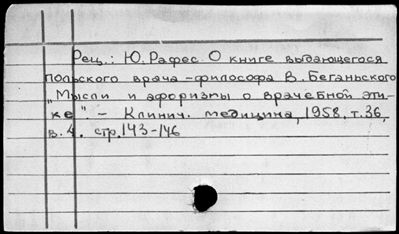 Рец.: Ю. Рафес. О книге выдающегося
польского врача-философа В. Беганьского
„Мысли и афоризмы о врачебной эти-
ке". - Клинич. медицина, 1958, т.36,
в.4. стр.143-146